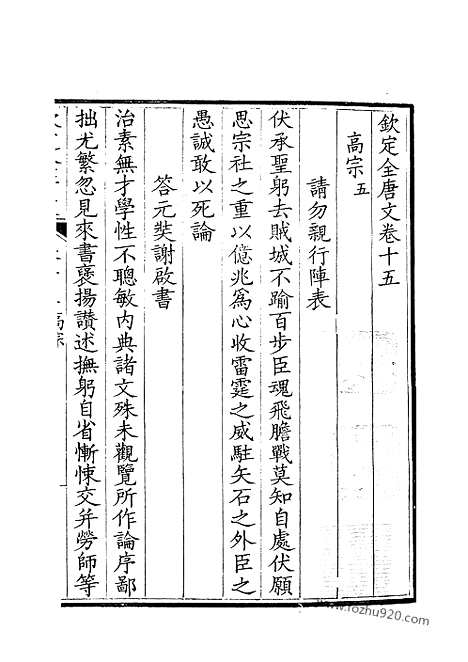 欽定全唐文卷十五
高宗五
請勿親行陣表
伏承聖躬去賊城不踰百步臣魂飛膽戰莫知自處伏願
思宗社之重以億兆爲心收雷霆之威駐矢石之外臣之
愚誠敢以死論
答元奘謝啟書
治素無才學性不聰敏内典諸文殊未觀覽所作論序鄙
拙尤繁忽見來書褒揚讚述撫躬自省慚悚交并勞師等
www.fozhu920.com